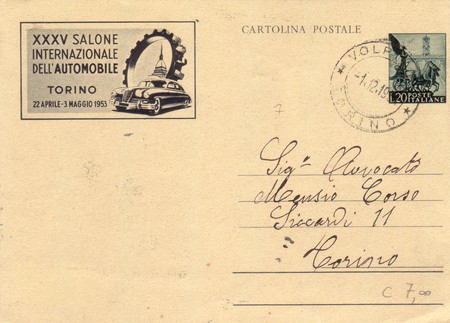 XXXV SALONE
INTERNAZIONALE
DELL'AUTOMOBILE
TORINO
22 APRILE - 3 MAGGIO 1953
CARTOLINA POSTALE
TORINO
L.20 POSTE
ITALIANE
7
Sigr Avvocato
Mensio Corso
Siccardi 11
Torino
C 7,00